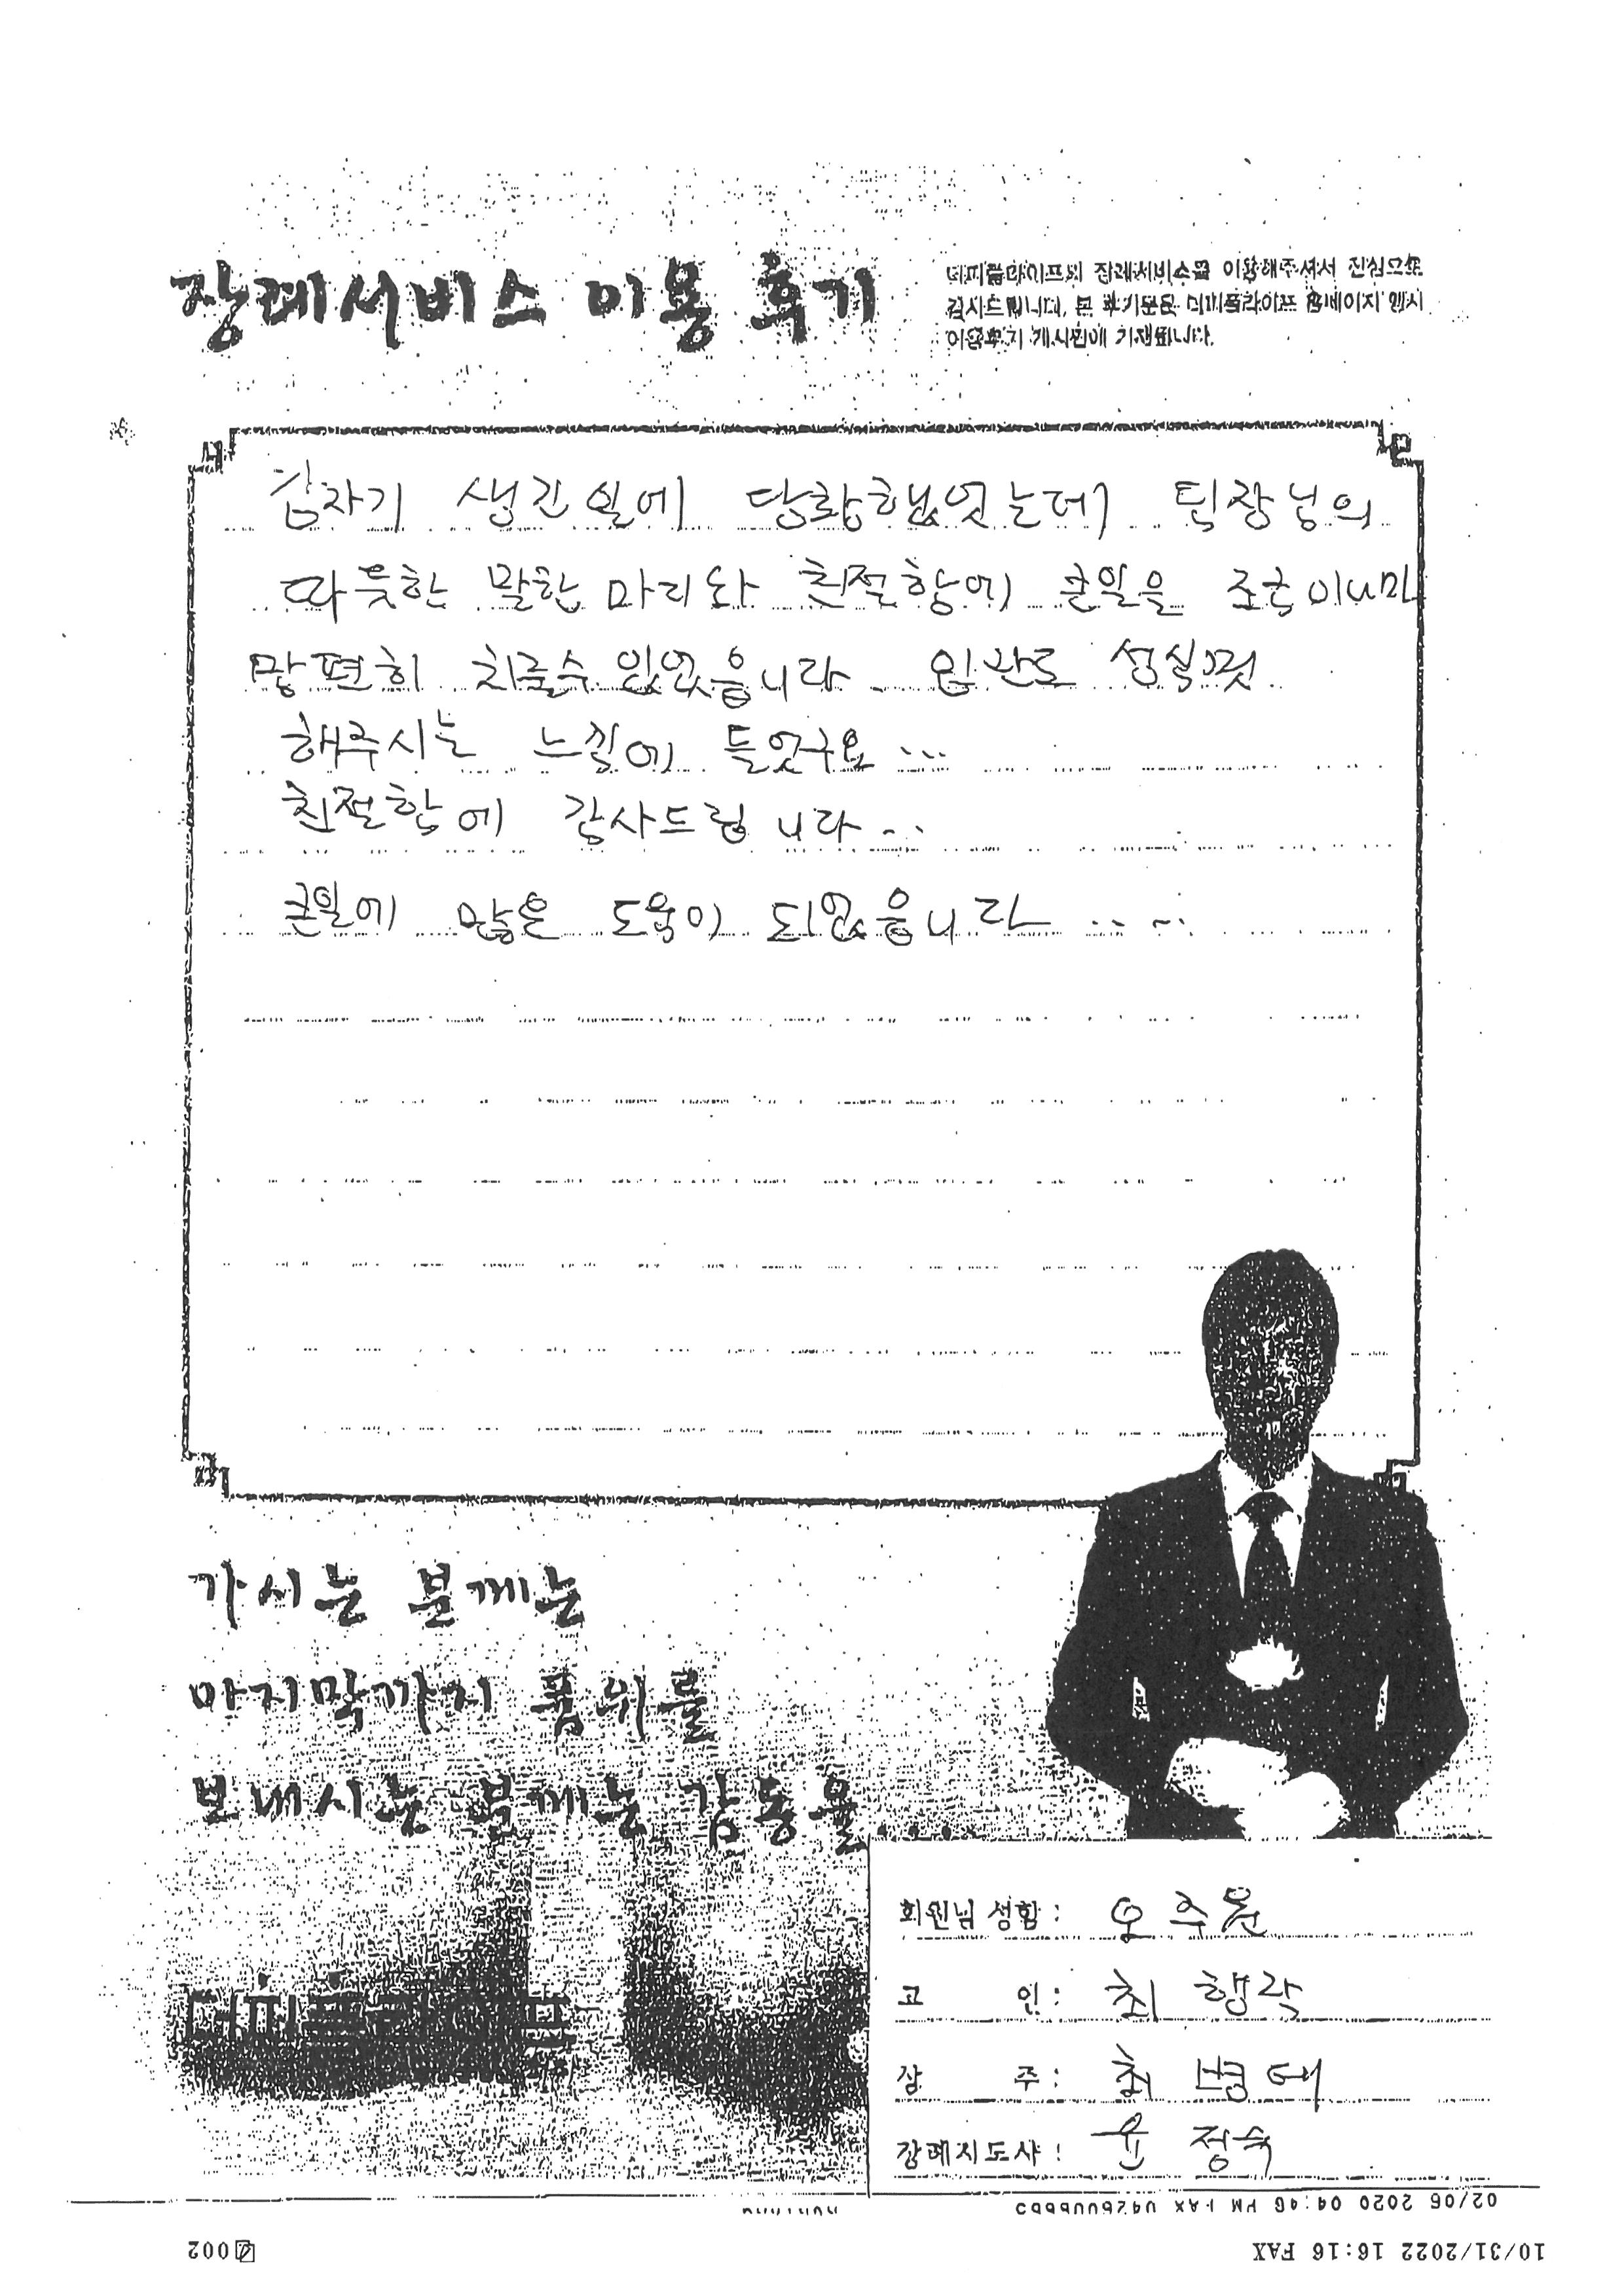 장례서비스 미용 후기
더피플라이프의 장례서비스를 이용해주셔서 진심으로
감사드립니다. 본 후기문은 더피플라이프 홈페이지 행사
이용후기 게시판에 기재됩니다.
갑자기 생긴일에 당황했었는데 팀장님의
따뜻한 말한마디와 친절함에 큰일을 조금이나마
맘편히 치룰수 있었습니다. 입관도 성실껏
해주시는 느낌에 들었구요...
친절함에 감사드립니다...
큰일에 많은 도움이 되었습니다....
가시는 분께는
마지막까지 품위를
보내시는 분께는 감동을....
더피플라이프
회원님 성함: 오주윤
고 인: 최행락
상 주: 최병태
장례지도사: 윤정숙
02/06 2020 04:46 PM FAX
10/31/2022 16:16 FAX
002